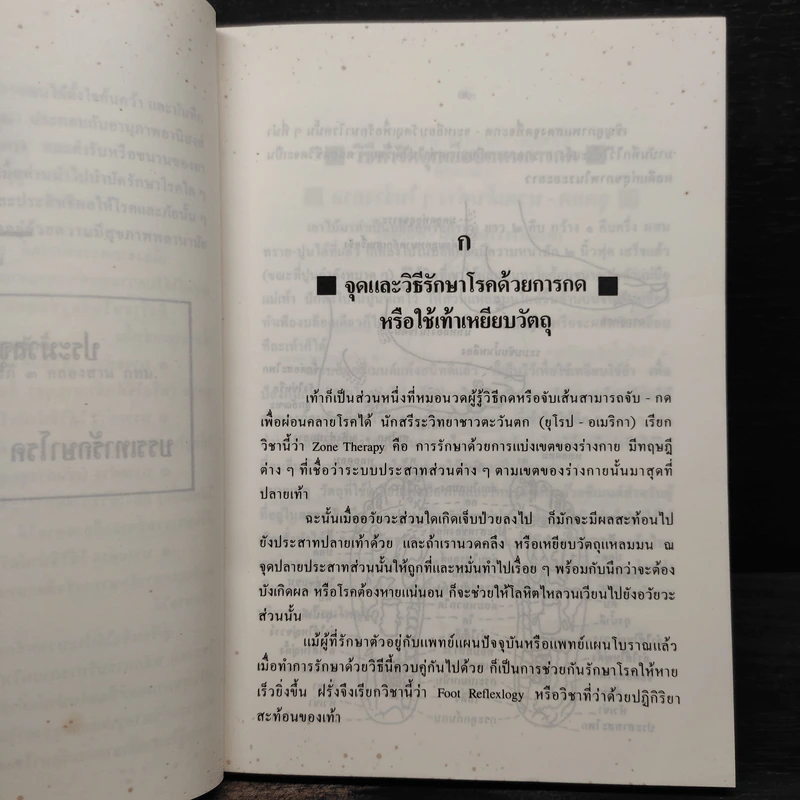 ก
จุดและวิธีรักษาโรคด้วยการกด
หรือใช้เท้าเหยียบวัตถุ
เท้าก็เป็นส่วนหนึ่งที่หมอนวดผู้รู้วิธีกดหรือจับเส้นสามารถจับ - กด
เพื่อผ่อนคลายโรคได้ นักสรีระวิทยาชาวตะวันตก (ยุโรป - อเมริกา) เรียก
วิชานี้ว่า Zone Therapy คือ การรักษาด้วยการแบ่งเขตของร่างกาย มีทฤษฎี
ต่าง ๆ ที่เชื่อว่าระบบประสาทส่วนต่าง ๆ ตามเขตของร่างกายนั้นมาสุดที่
ปลายเท้า
ฉะนั้นเมื่ออวัยวะส่วนใดเกิดเจ็บป่วยลงไป ก็มักจะมีผลสะท้อนไป
ยังประสาทปลายเท้าด้วย และถ้าเรานวดคลึง หรือเหยียบวัตถุแหลมมน ณ
จุดปลายประสาทส่วนนั้นให้ถูกที่และหมั่นทำไปเรื่อย ๆ พร้อมกับนึกว่าจะต้อง
บังเกิดผล หรือโรคต้องหายแน่นอน ก็จะช่วยให้โลหิตไหลวนเวียนไปยังอวัยวะ
ส่วนนั้น
แม้ผู้ที่รักษาตัวอยู่กับแพทย์แผนปัจจุบันหรือแพทย์แผนโบราณแล้ว
เมื่อทำการรักษาด้วยวิธีนี้ควบคู่กันไปด้วย ก็เป็นการช่วยกันรักษาโรคให้หาย
เร็วยิ่งขึ้น ฝรั่งจึงเรียกวิชานี้ว่า Foot Reflexlogy หรือวิชาที่ว่าด้วยปฏิกิริยา
สะท้อนของเท้า